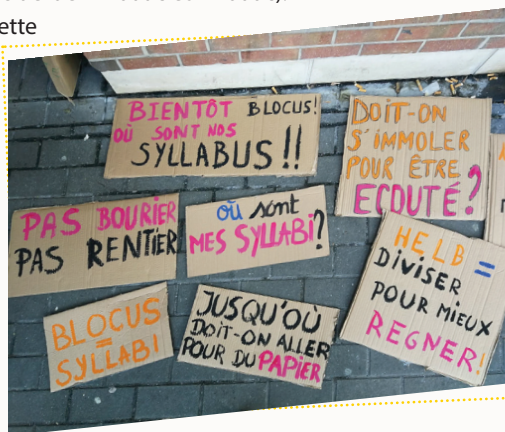 ette
BIENTÔT BLOCUS!
OÙ SONT NOS
SYLLABUS !!
DOIT-ON
S'IMMOLER
POUR ÊTRE
ECOUTÉ?
PAS BOURIER
PAS RENTIER
où sont
MES SYLLABI?
HELB =
DIVISER
POUR MIEUX
REGNER!
BLOCUS
=
SYLLABI
JUSQU'OÙ
DOIT-ON ALLER
POUR DU PAPIER